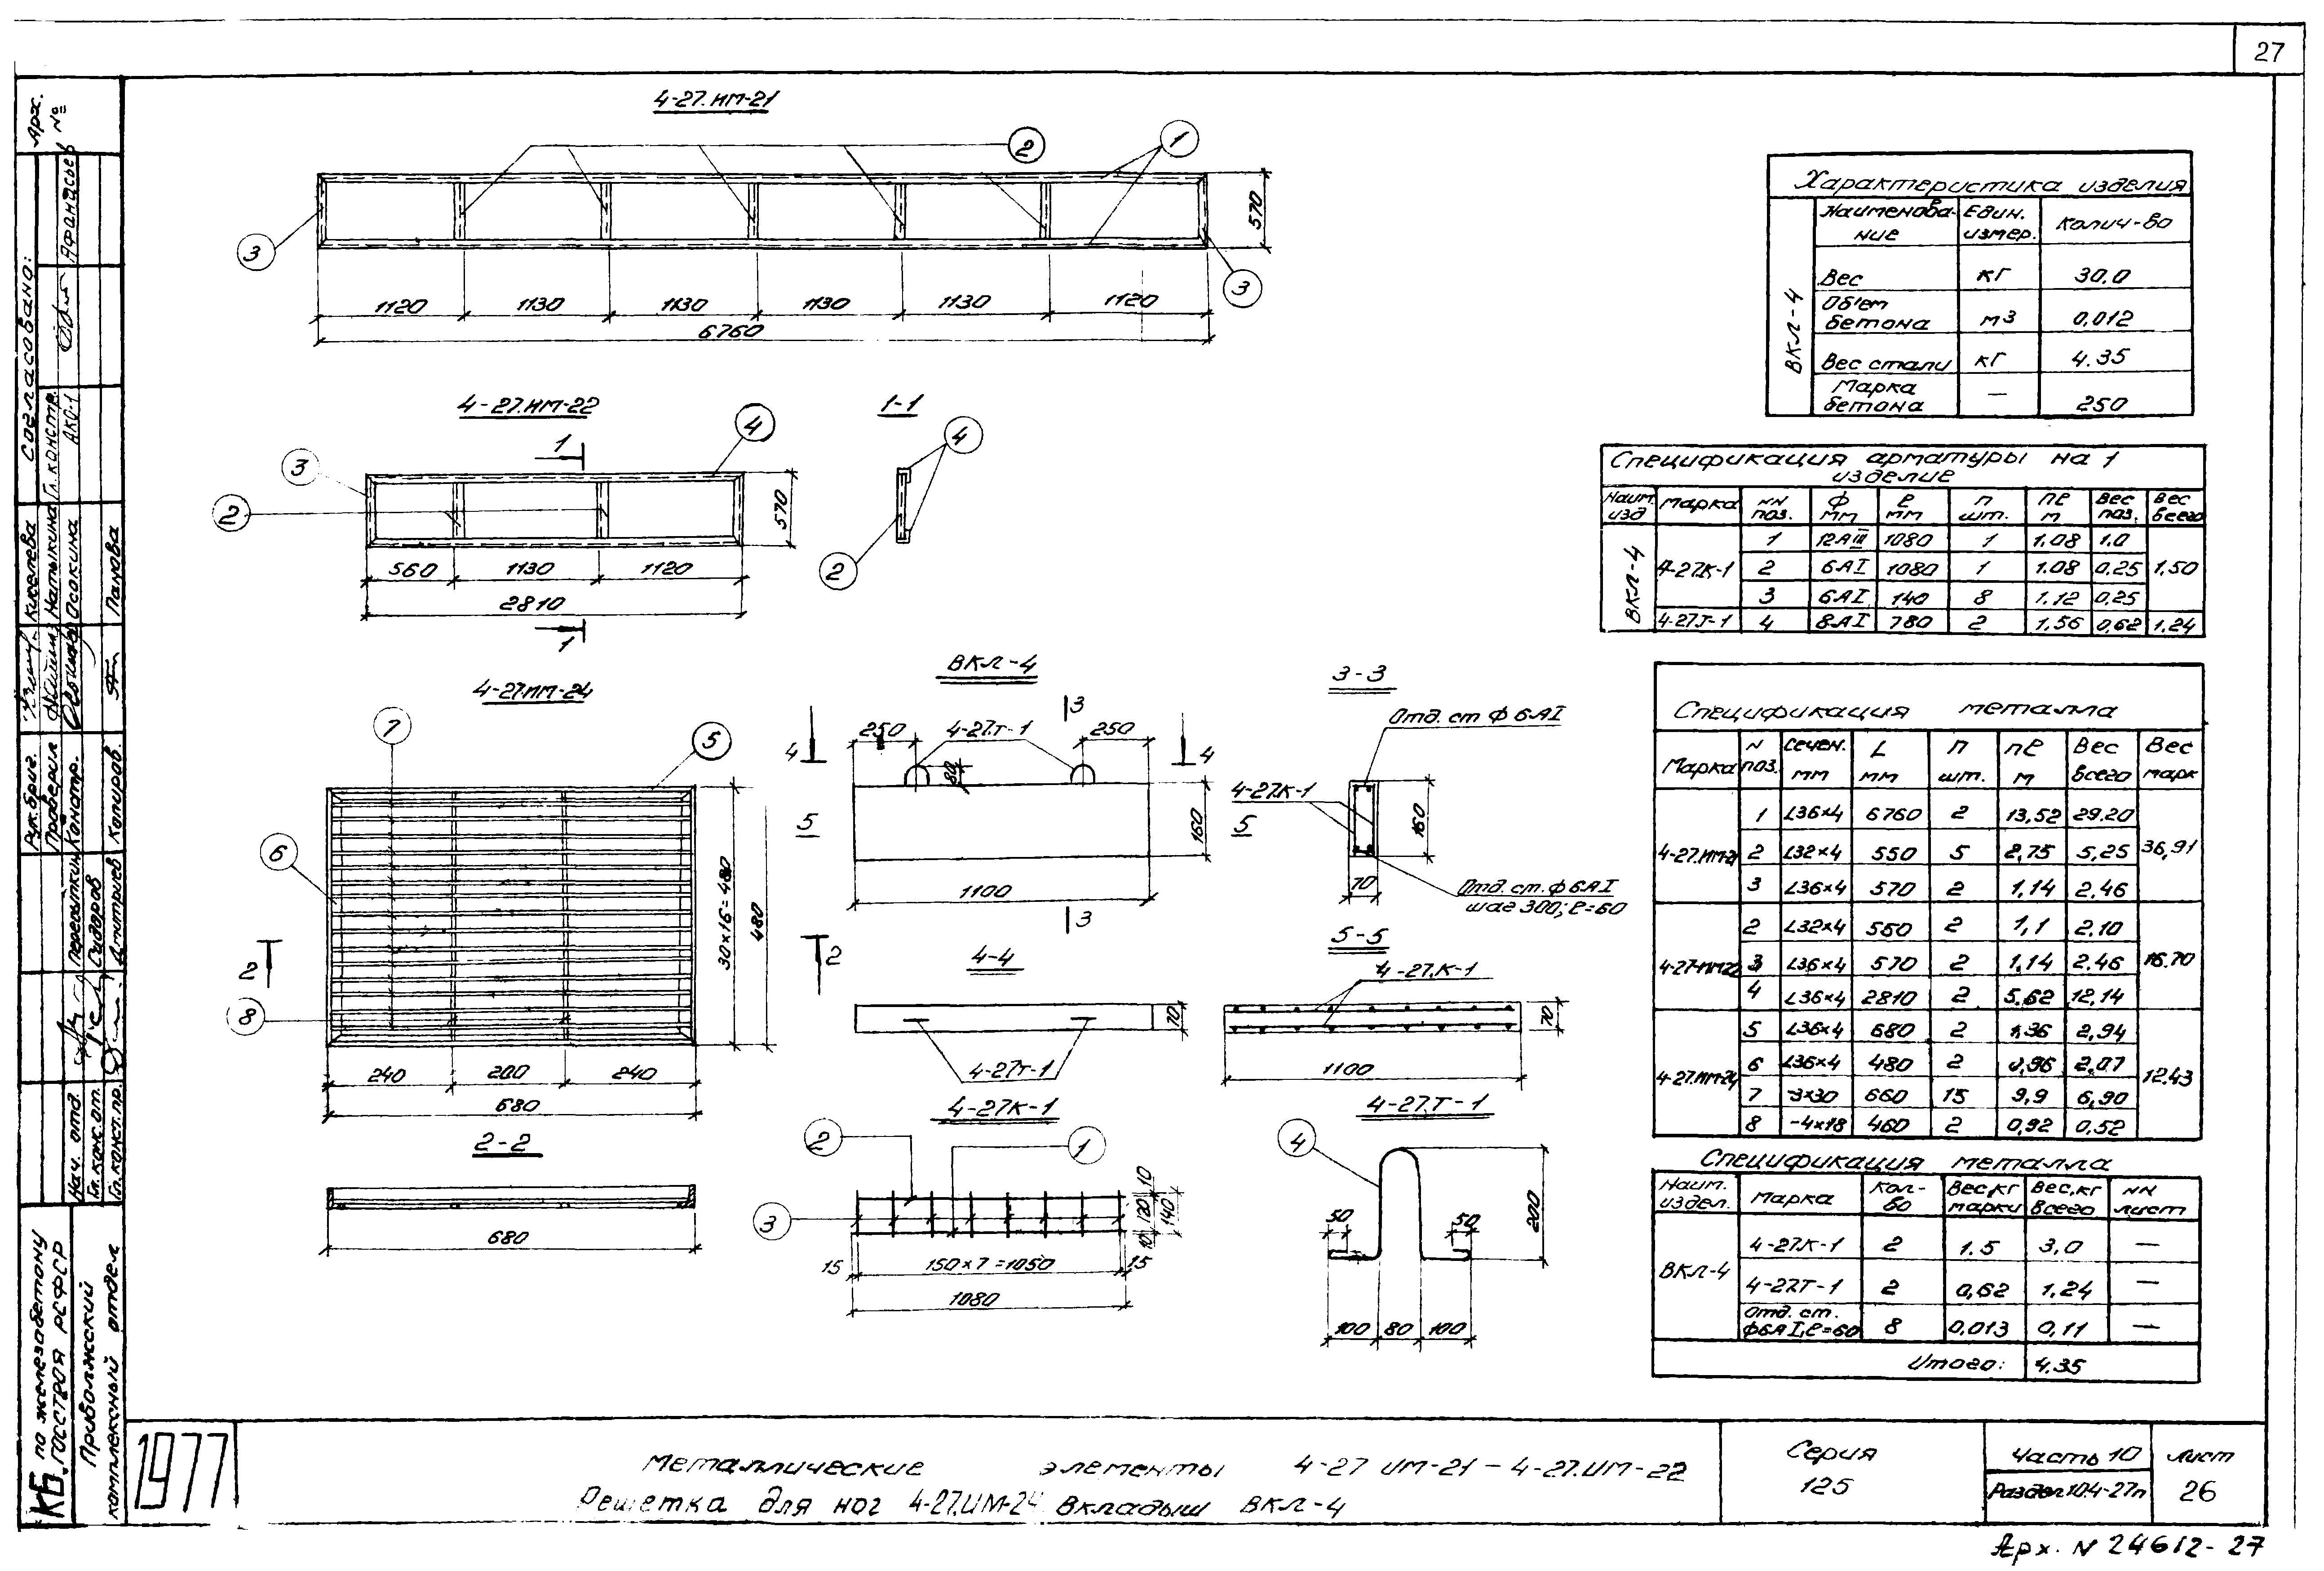 27
4-27.ИМ-21
2
1
3
3
570
1120
1130
1130
1130
1130
1120
6760
4-27.ИМ-22
1-1
1
4
4
3
2
2
570
560
1130
1120
2810
1
4-27.ИМ-24
7
5
6
8
2
2
30×16=480
480
240
200
240
680
2-2
680
ВКЛ-4
3
250
4-27.Т-1
250
4
4
80
5
5
160
1100
3
3-3
Отд. ст Ф 6АI
4-27.К-1
160
70
Отд. ст. Ф 6АI
шаг 300; ℓ=60
4-4
70
4-27Т-1
5-5
4-27.К-1
70
1100
4-27К-1
2
1
3
10
120
140
10
15
150×7=1050
15
1080
4-27.Т-1
4
50
50
200
100
80
100
Характеристика изделия
ВКЛ-4
Наименова-ние
Един. измер.
Колич-во
Вес кг 30,0
Об'ем бетона м3 0,012
Вес стали кг 4.35
Марка бетона — 250
Спецификация арматуры на 1
изделие
Наим. изд
Марка
NN поз.
Ф мм
ℓ мм
п шт.
пℓ м
Вес поз.
Вес всего
ВКЛ-4
4-27.К-1
1 12АIII 1080 1 1.08 1.0
2 6АI 1080 1 1.08 0,25 1,50
3 6АI 140 8 1.12 0,25
4-27.Т-1 4 8АI 780 2 1,56 0,62 1,24
Спецификация металла
Марка
N поз.
Сечен. мм
L мм
п шт.
пℓ м
Вес всего
Вес марк
4-27.ИМ-21
1 L36×4 6760 2 13,52 29.20
2 L32×4 550 5 2,75 5,25 36,91
3 L36×4 570 2 1,14 2.46
4-27.ИМ-22
2 L32×4 550 2 1,1 2.10
3 L36×4 570 2 1,14 2.46 16.70
4 L36×4 2810 2 5,62 12,14
4-27.ИМ-24
5 L36×4 680 2 1,36 2,94
6 L36×4 480 2 0,96 2,07 12.43
7 -3×30 660 15 9,9 6,90
8 -4×18 460 2 0,92 0,52
Спецификация металла
Наим. издел.
Марка
Кол-во
Вес,кг марки
Вес,кг всего
NN лист
ВКЛ-4
4-27К-1 2 1.5 3,0 —
4-27.Т-1 2 0,62 1,24 —
Отд. ст. Ф6АI,ℓ=60 8 0,013 0,11 —
Итого: 4,35
Арх. №
Согласовано:
Афанасьев
Гл. констр.
АКО-1
Рук. бриг.
Киселева
Проверил
Натыкина
Констр.
Осокина
Копиров.
Панова
Нач. отд.
Перевыткин
Гл. конс. от.
Сидоров
Гл. конст. пр.
Дмитриев
КБ по железобетону
Госстроя РСФСР
Приволжский
комплексный отдел
1977
Металлические элементы 4-27 ИМ-21 – 4-27.ИМ-22
Решетка для ног 4-27.ИМ-24 Вкладыш ВКЛ-4
Серия
125
Часть 10
Раздел 10.4-27п
Лист
26
Арх. N 24612-27